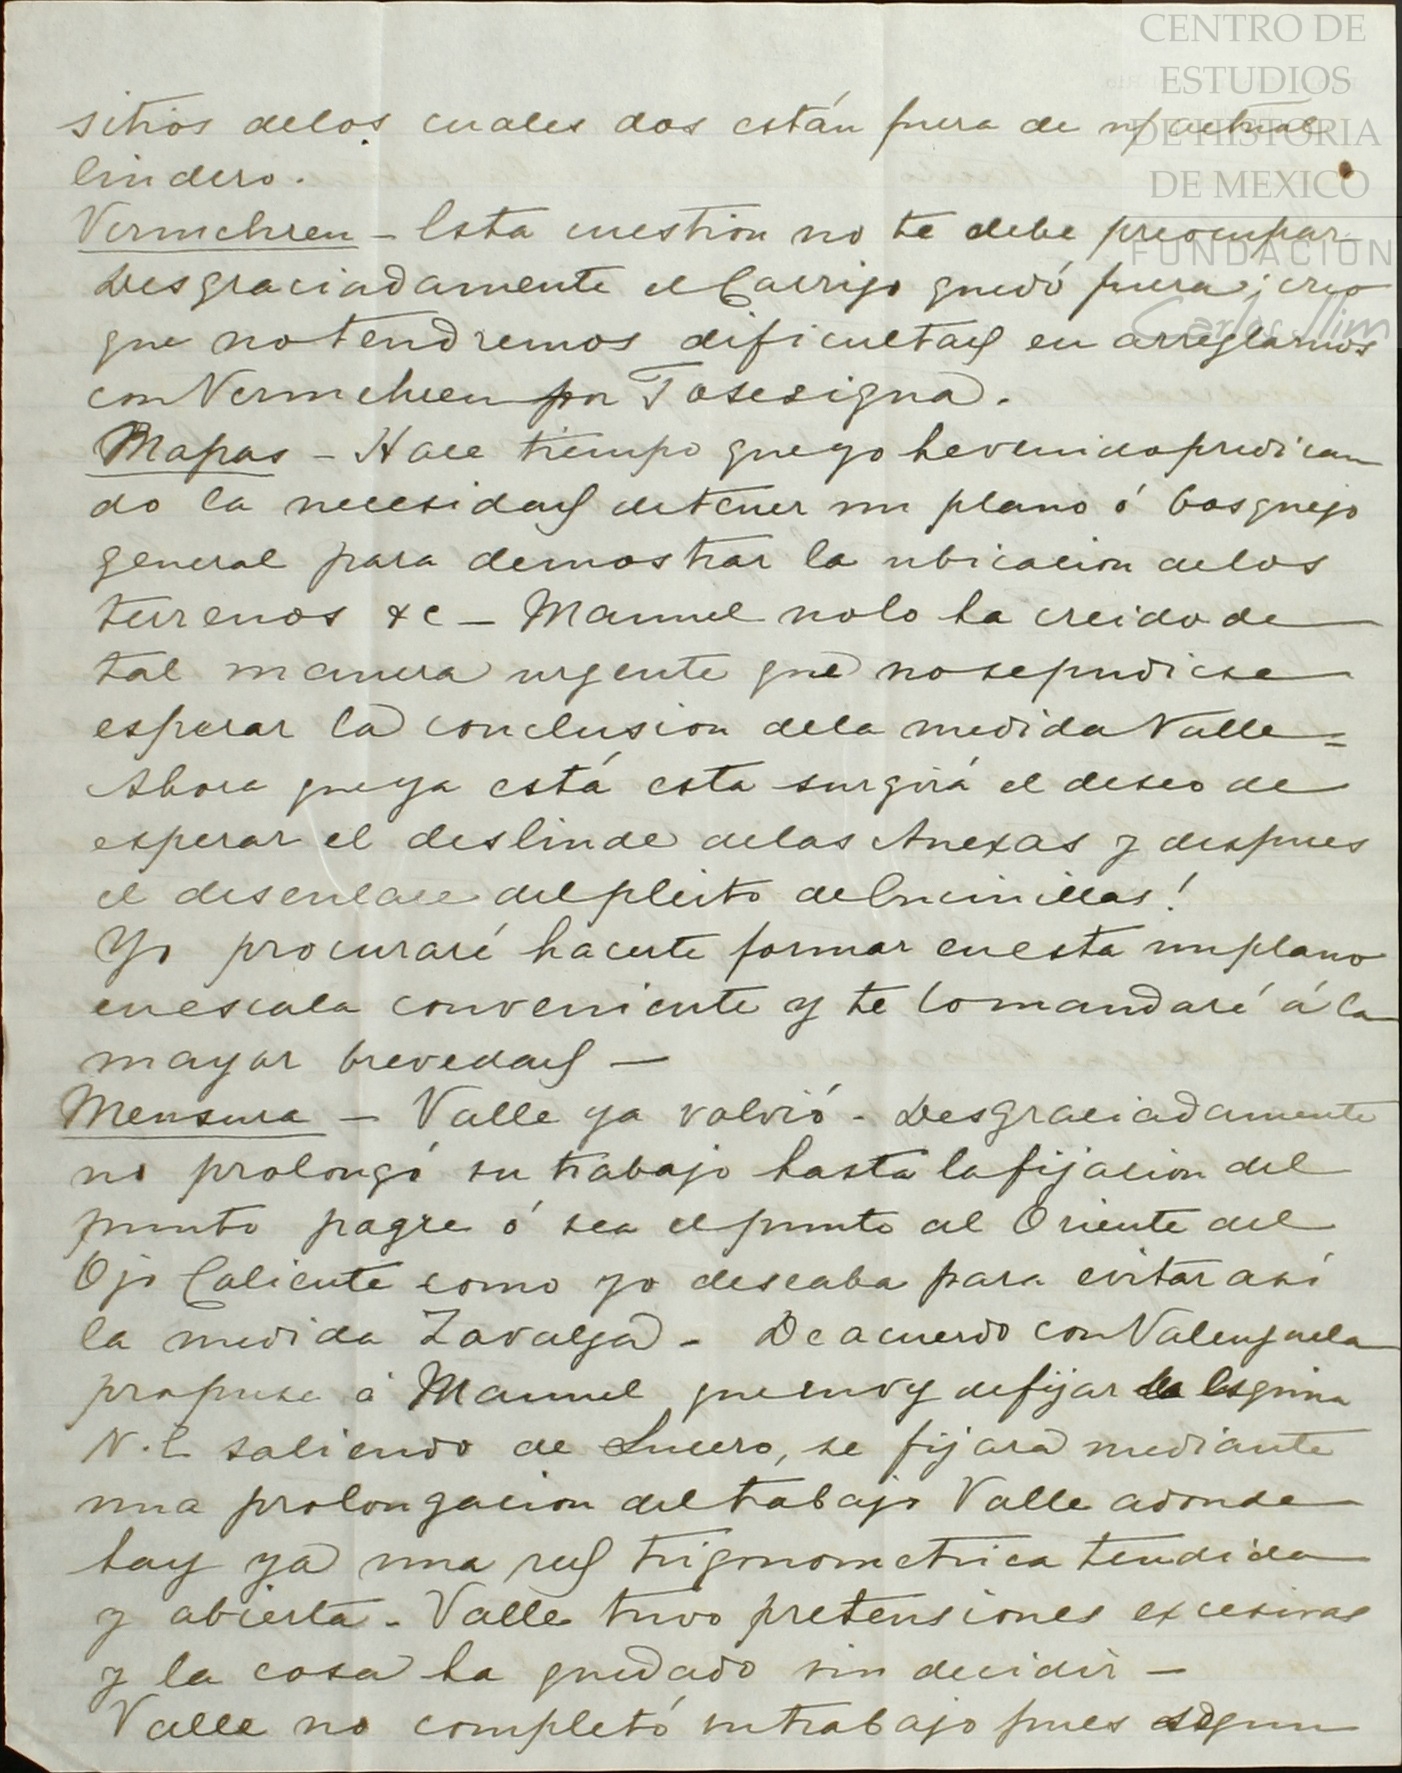 CENTRO DE
ESTUDIOS
DE HISTORIA
DE MEXICO
FUNDACION
Carlos Slim
sitios delos cuales dos están fuera de nt/ actual
lindero.
Vermehren - Esta cuestion no te debe preocupar
Desgraciadamente el Carrizo quedó fuera; creo
que no tendremos dificultad en arreglarnos
con Vermehren por Tosesigua.
Mapas - Hace tiempo que yo he venido predican
do la necesidad de tener un plano ó bosquejo
general para demostrar la ubicacion delos
terrenos &c - Manuel no lo ha creido de
tal manera urgente que no se pudiese
esperar la conclusion dela medida Valle =
Ahora que ya está esta surgirá el deseo de
esperar el deslinde delas Anexas y despues
el desenlace del pleito de Encinillas!
Yo procuraré hacerte formar en esta un plano
en escala conveniente y te lo mandaré á la
mayor brevedad -
Mensura - Valle ya volvió - Desgraciadamente
no prolongó su trabajo hasta la fijacion del
punto pagre ó sea el punto al Oriente del
Ojo Caliente como yo deseaba para evitar asi
la medida Zavalza - De acuerdo con Valenzuela
propuse á Manuel que en vez de fijar la Esquina
N.E saliendo de Lucero, se fijara mediante
una prolongacion del trabajo Valle adonde
hay ya una red trigonometrica tendida
y abierta - Valle tuvo pretensiones excesivas
y la cosa ha quedado sin decidir -
Valle no completó su trabajo pues segun